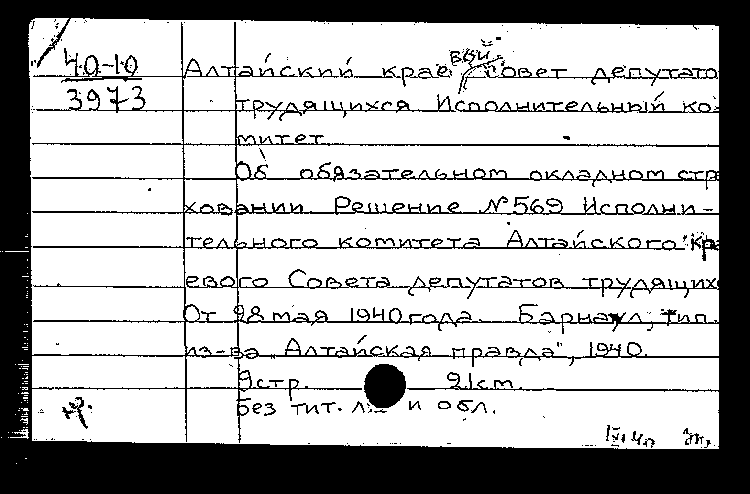 40-10
3973
Алтайский краевой совет депутато
трудящихся Исполнительный ко-
митет.
Об обязательном окладном стра
ховании. Решение №569 Исполни-
тельного комитета Алтайского кра
евого Совета депутатов трудящихс
От 28 мая 1940 года. Барнаул, тип.
из-ва „Алтайская правда", 1940.
9 стр. 21 см.
Без тит. л. и обл.